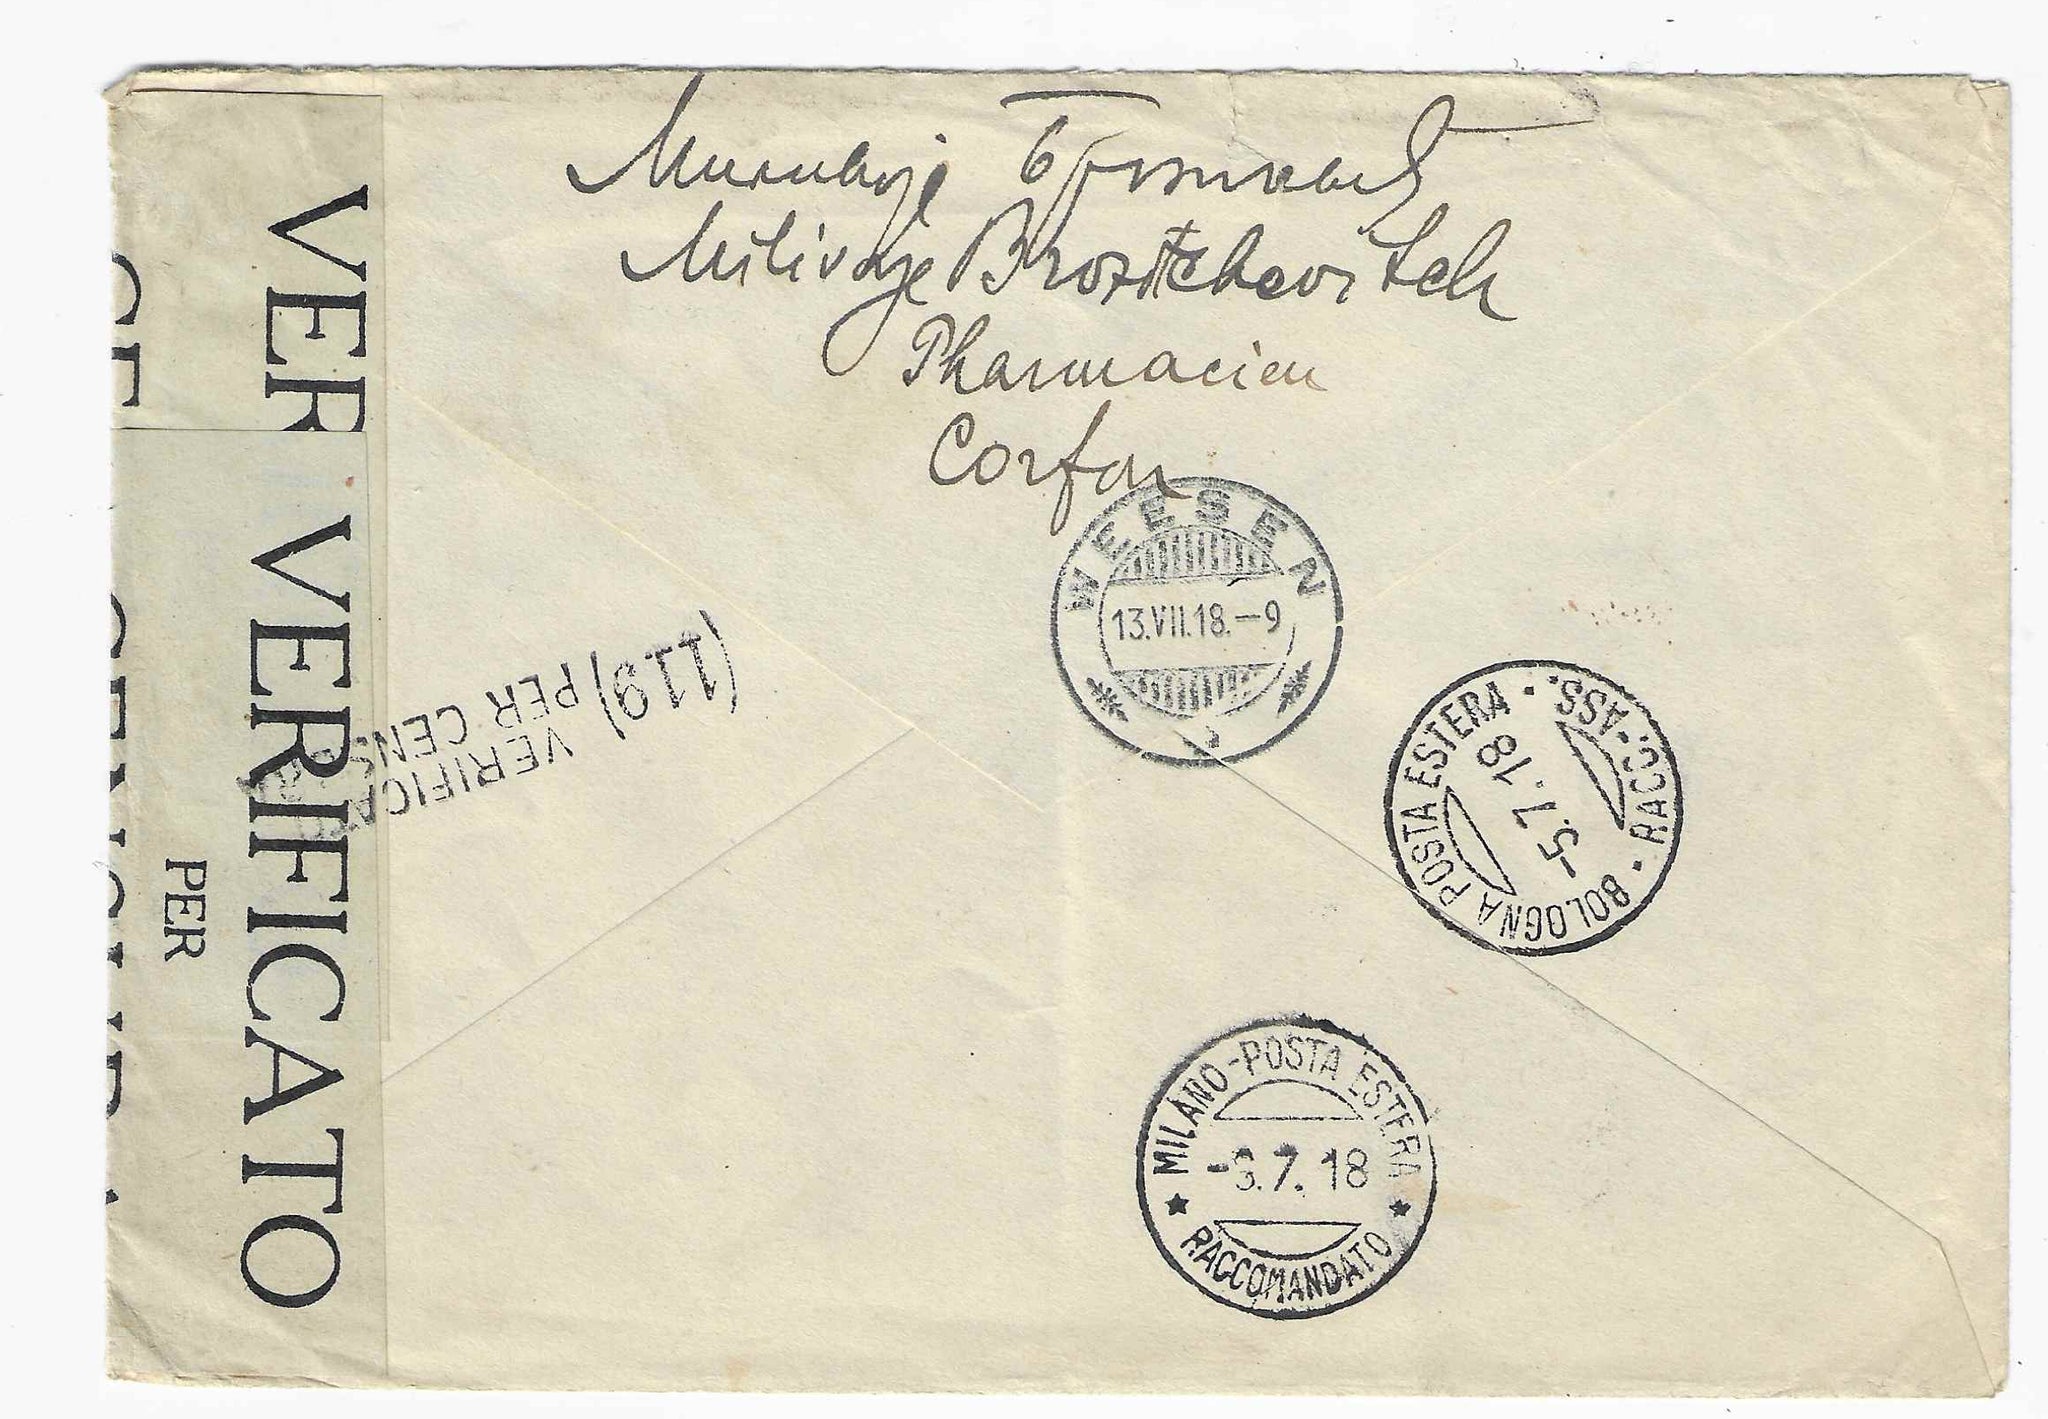 Миливоје
Milivoje Brositchevitch
Pharmacien
Corfou
WEESEN
13.VII.18.—9
BOLOGNA POSTA ESTERA · RACC.-ASS. ·
-5.7.18
MILANO-POSTA ESTERA
7.18
RACCOMANDATO
(119) PER CENS
VERIFICA
VER
CE
VERIFICATO
PER
CENSURA